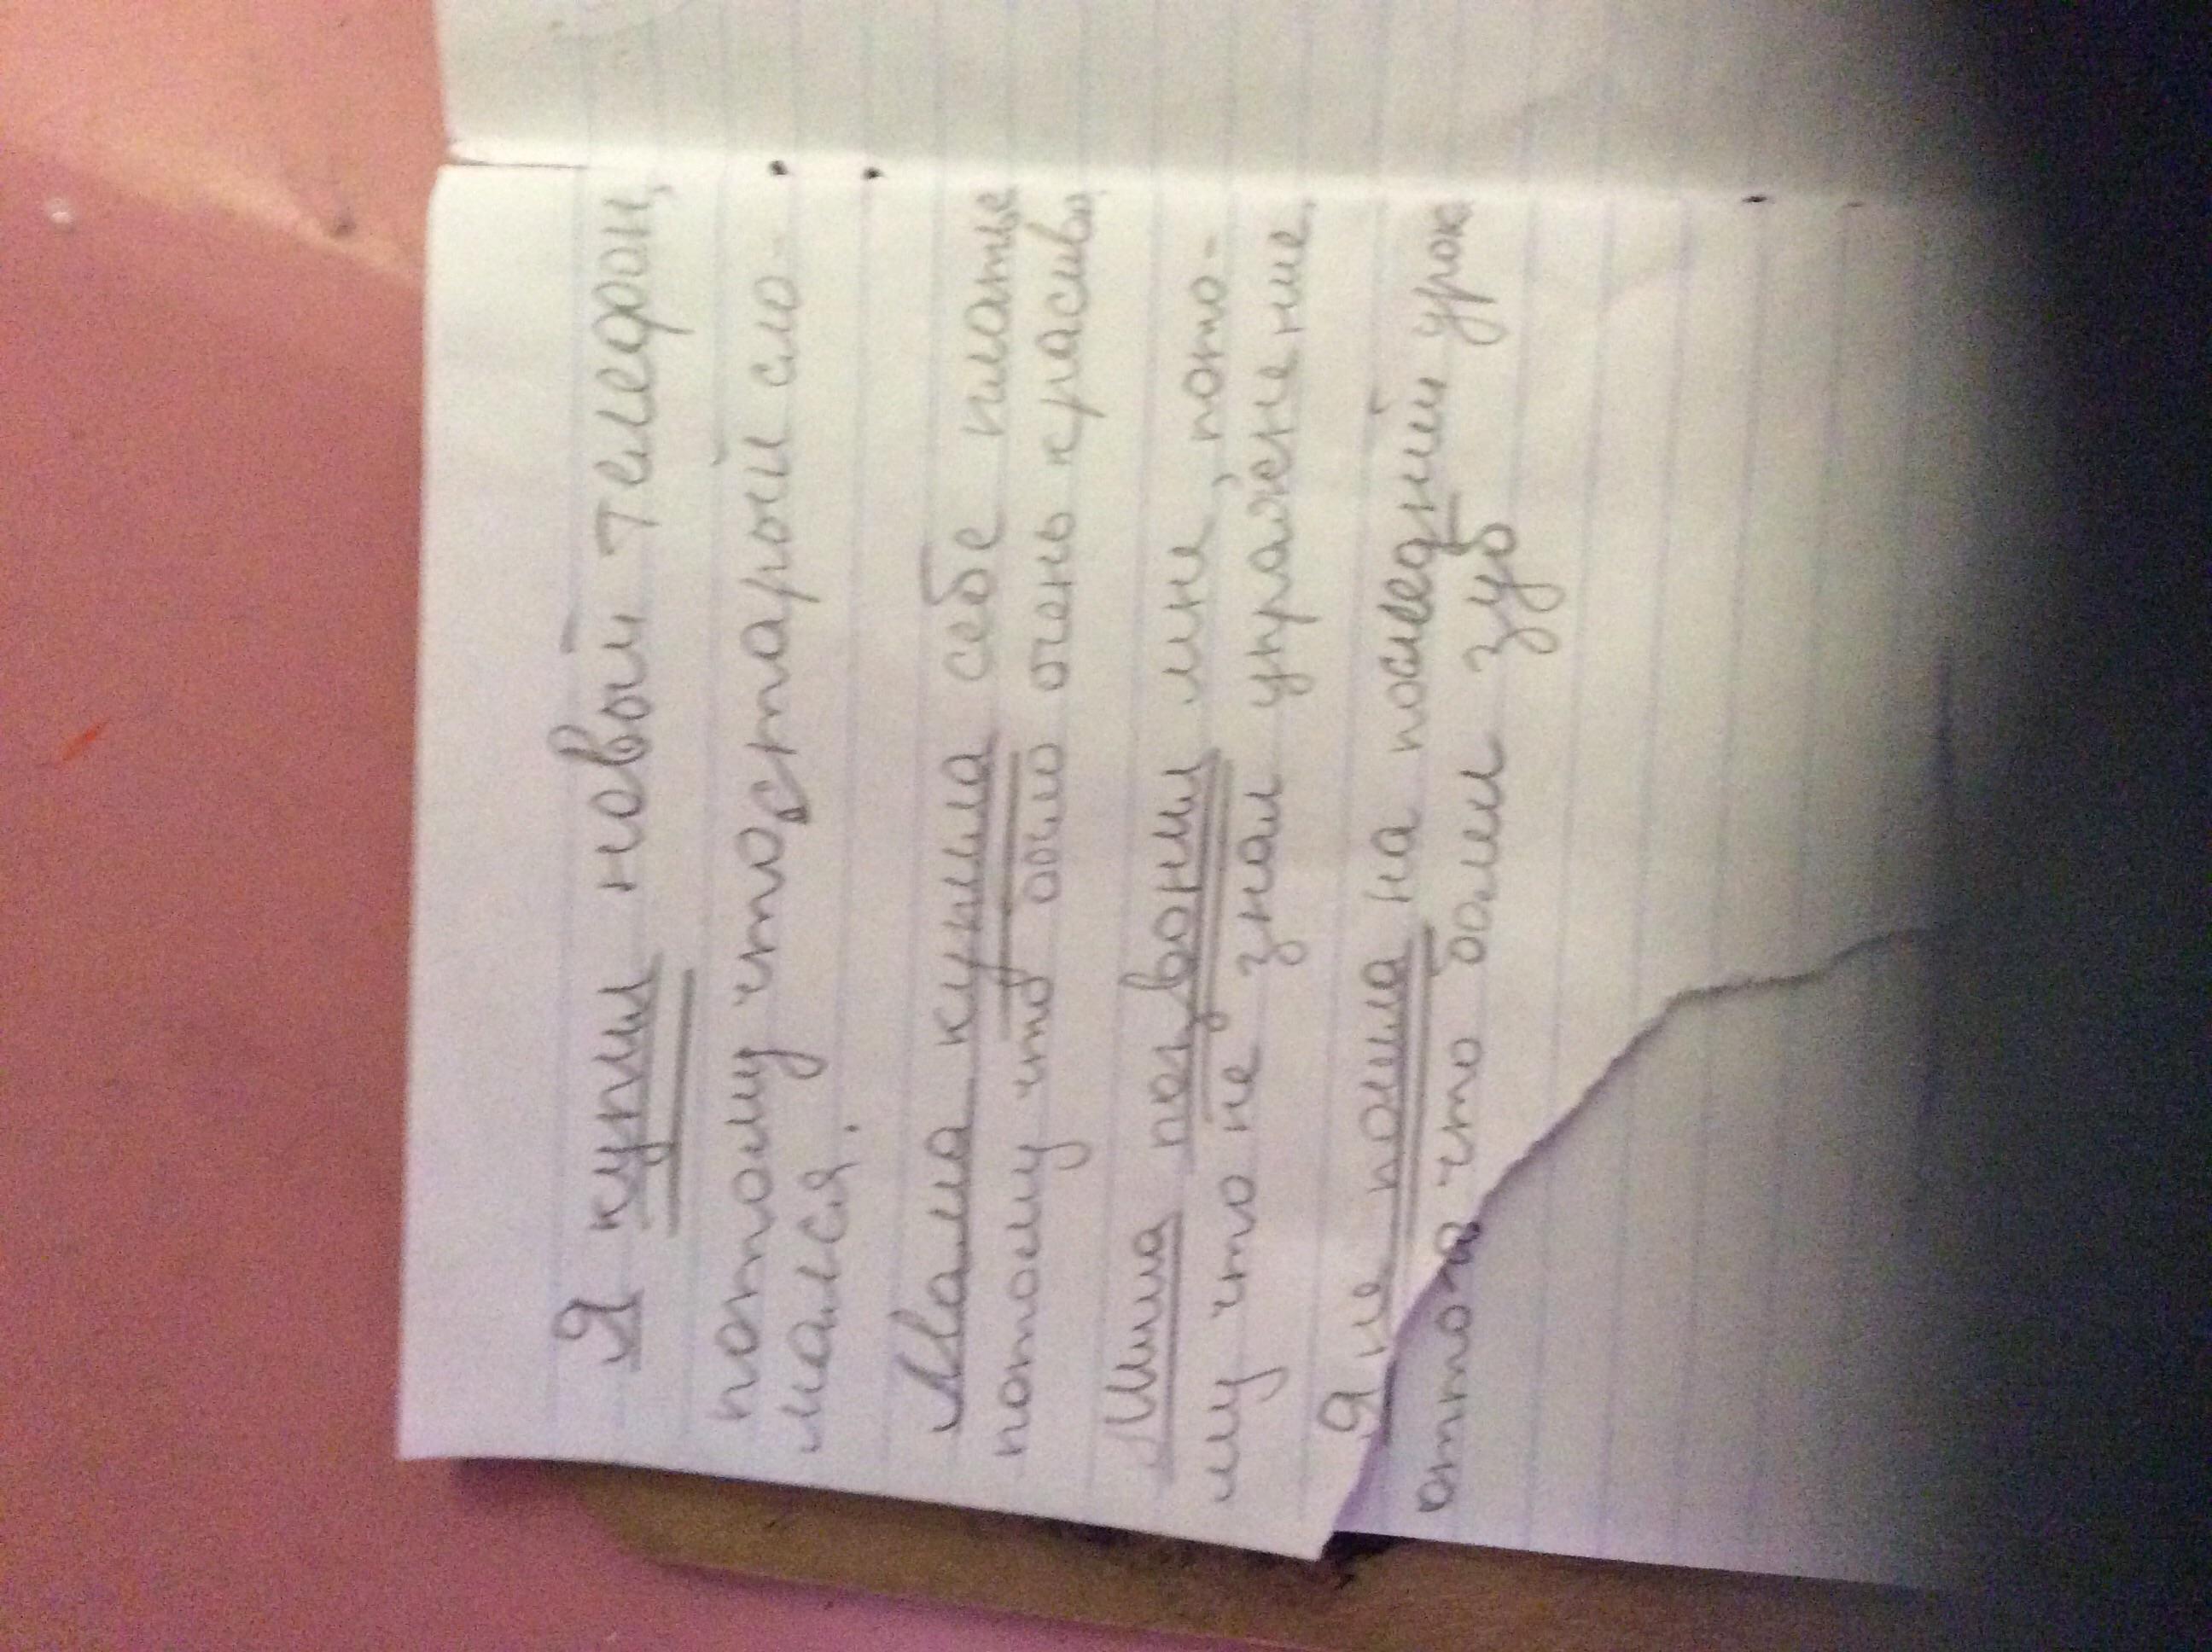 Я купил новый телефон,
потому что старый сло-
мался.
Мама купила себе платье
потому что оыло очень красиво,
Миша позвонил мне, пото-
му что не знал упражнение.
Я не пошла на последний урок
что болел зуб